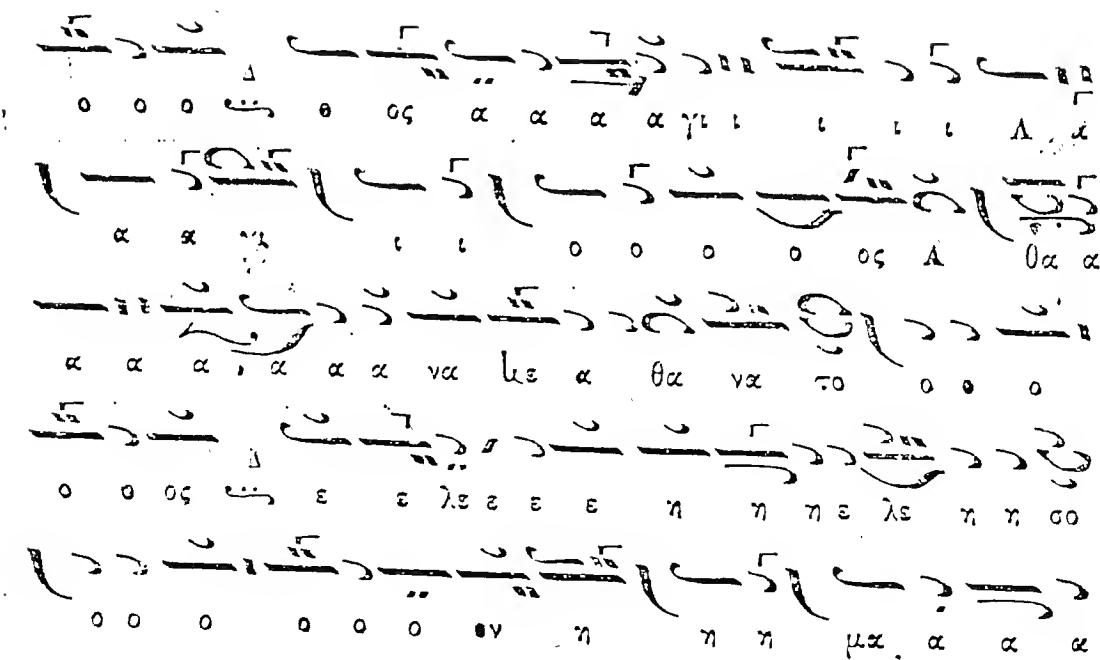 ο ο ο ο ος α α α α γι ι ι ι ι Α α
α α γι ι ι ο ο ο ο ος Α θα α
α α α α α α να κε α θα να το ο ο ο
ο ο ος ε ε λε ε ε ε η η η ε λε η η σο
ο ο ο ο ο ο ον η η η μα α α α